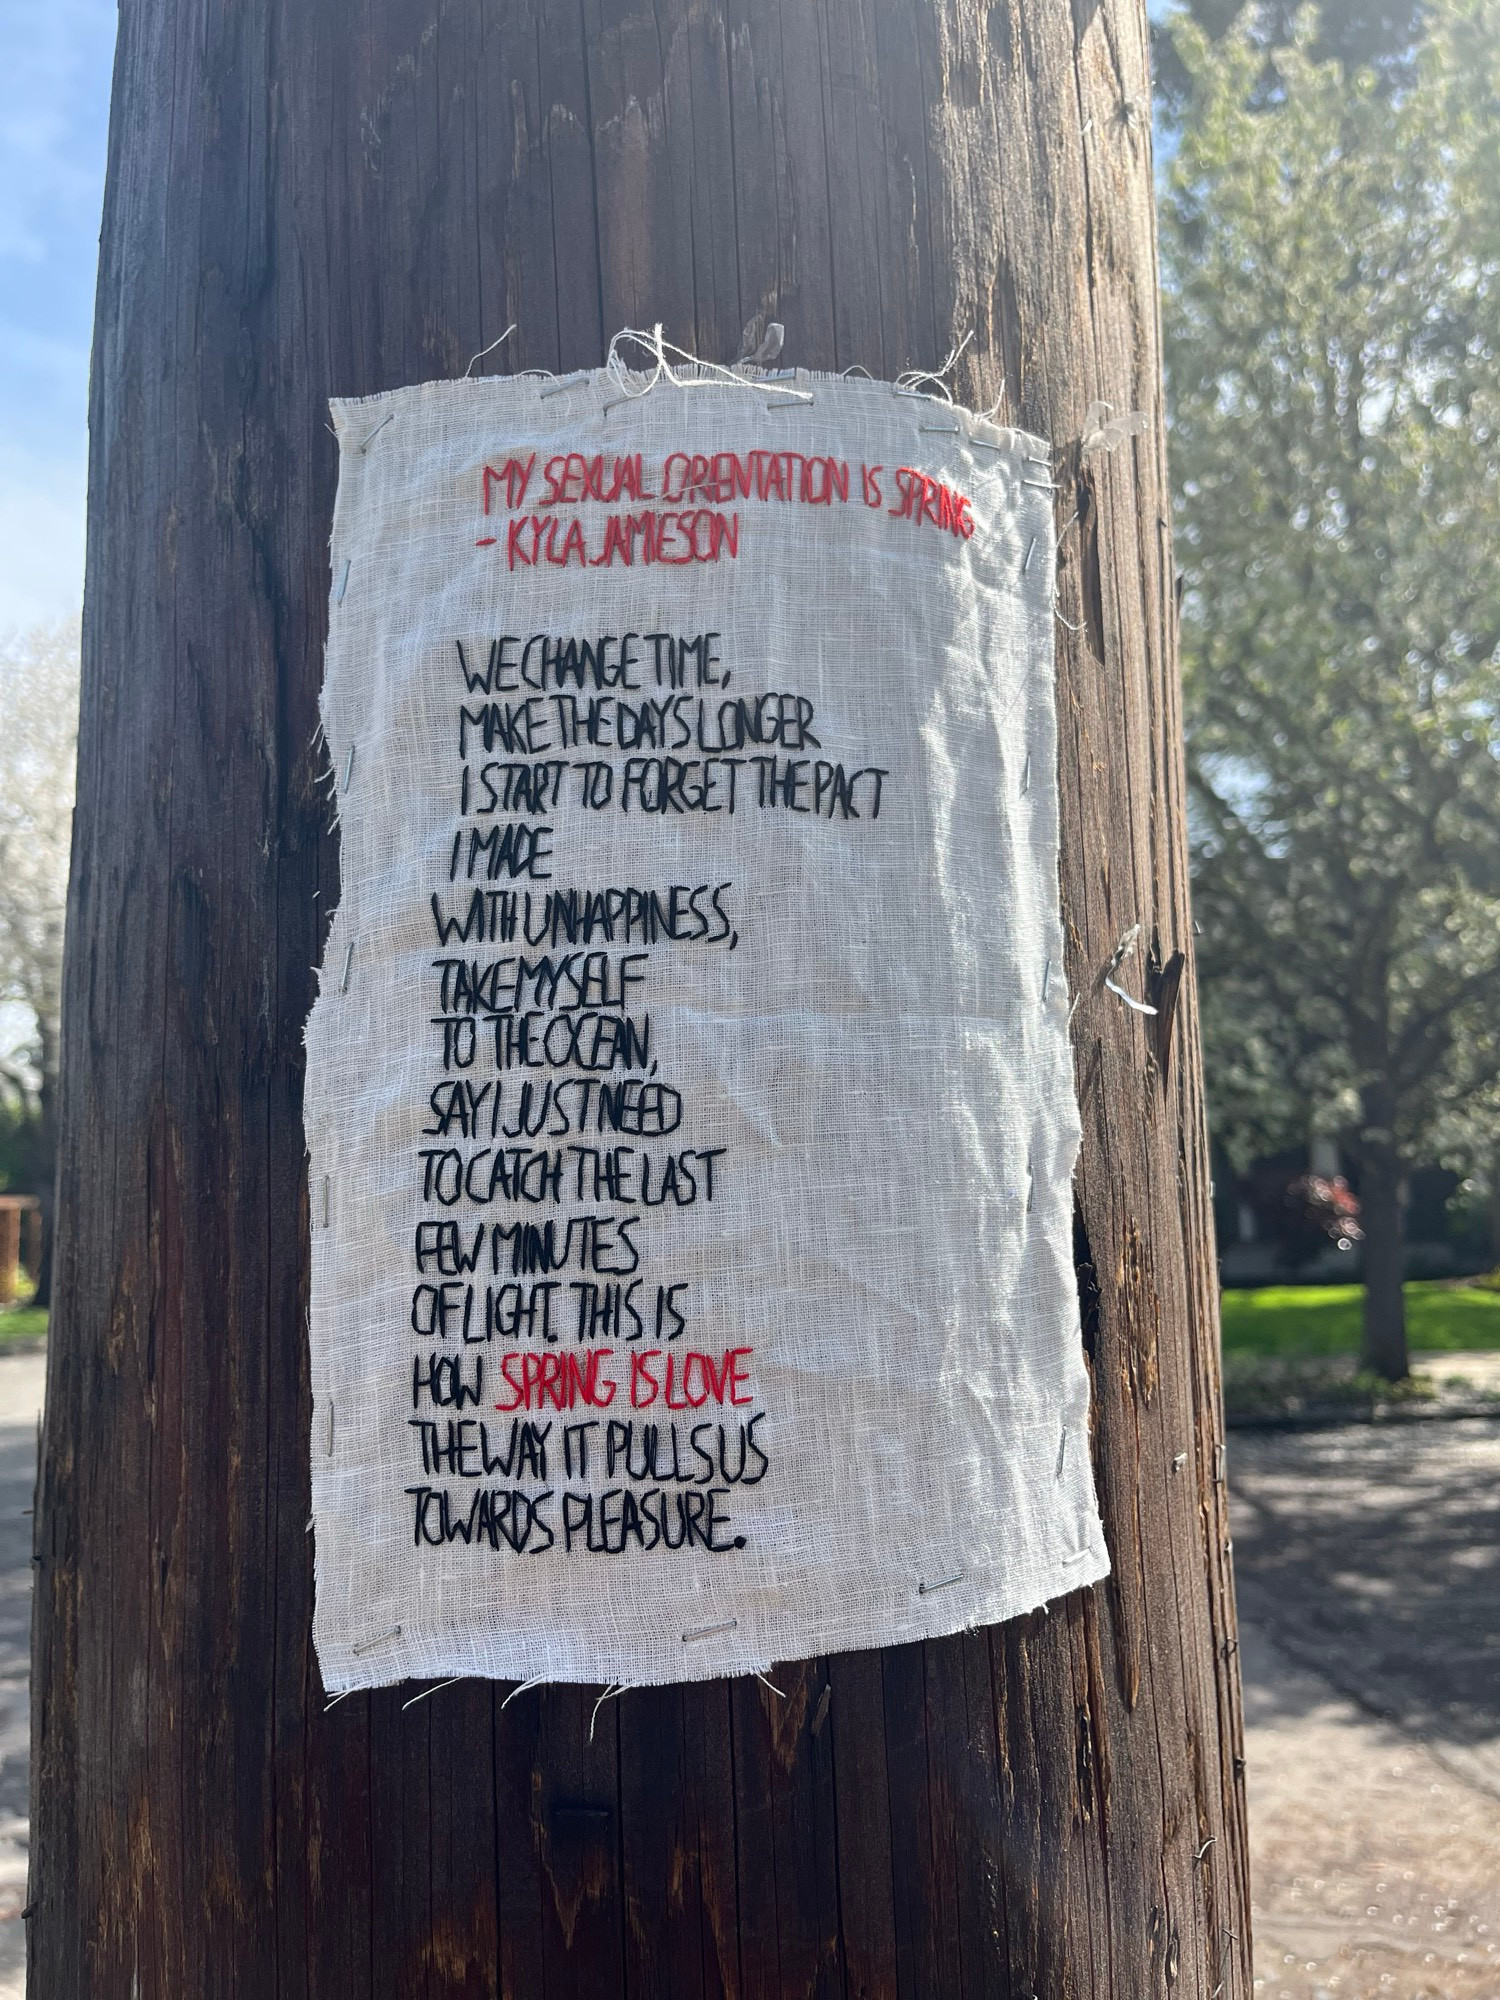 MY SEXUAL ORIENTATION IS SPRING
- KYLA JAMIESON
WE CHANGE TIME,
MAKE THE DAYS LONGER
I START TO FORGET THE PACT
I MADE
WITH UNHAPPINESS,
TAKE MYSELF
TO THE OCEAN,
SAY I JUST NEED
TO CATCH THE LAST
FEW MINUTES
OF LIGHT. THIS IS
HOW SPRING IS LOVE
THE WAY IT PULLS US
TOWARDS PLEASURE.